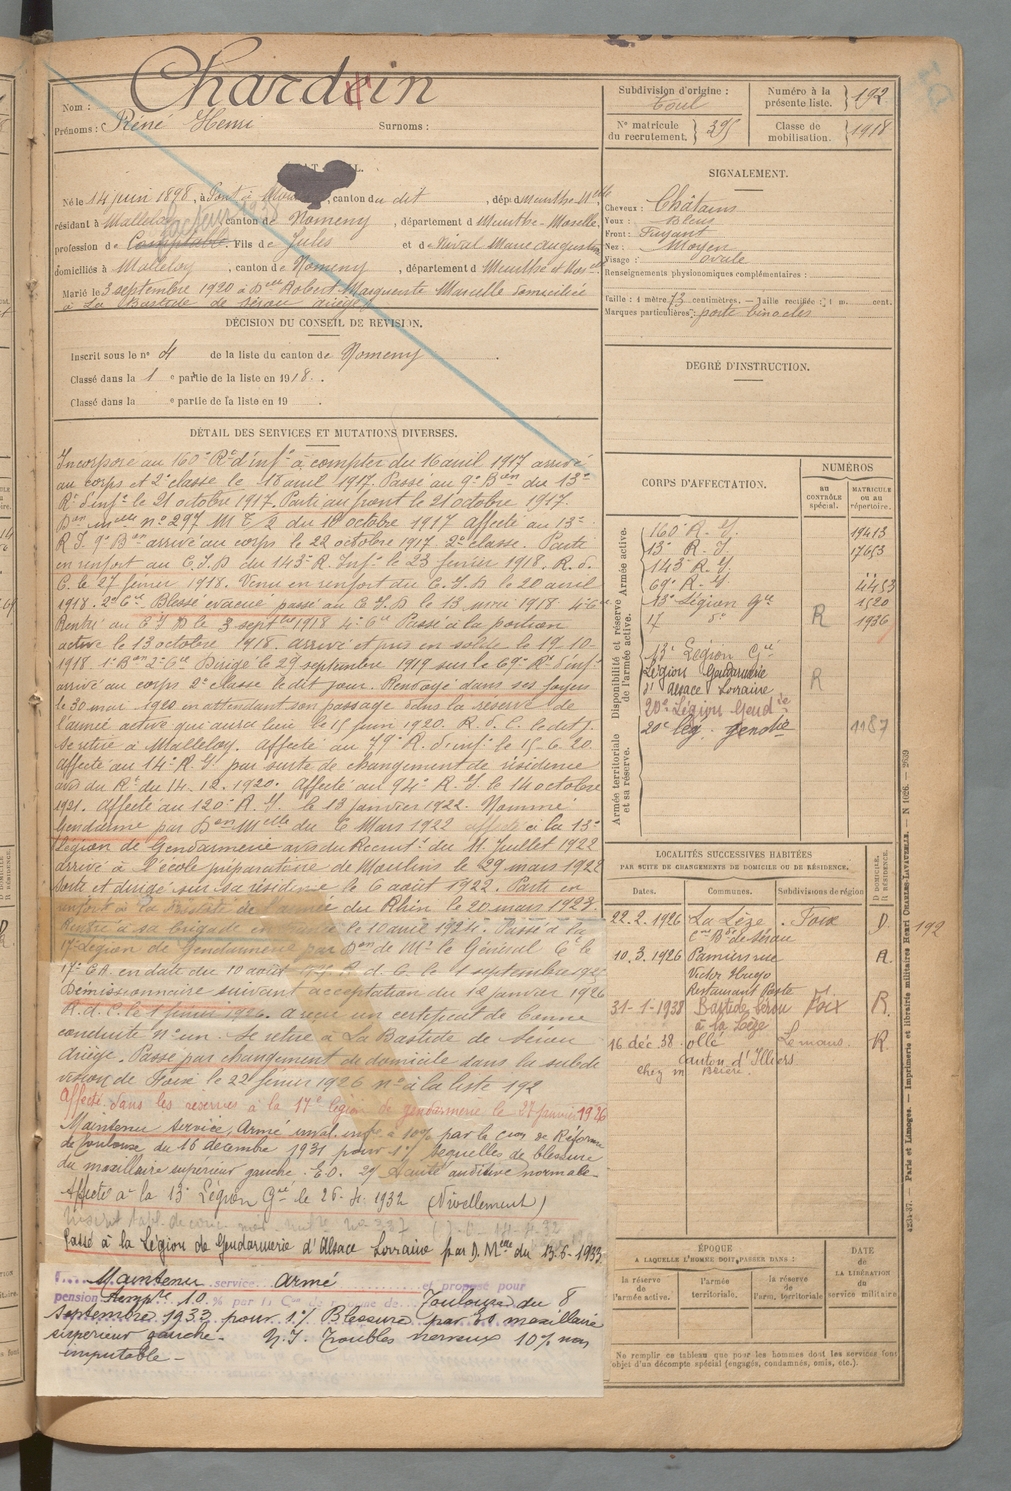 Chardin
Nom :
Prénoms : Réné Henri Surnoms :
Subdivision d'origine : Toul
Numéro à la présente liste. 192
N° matricule du recrutement. 395
Classe de mobilisation. 1918
Né le 14 juin 1898, à Pont à , canton du dit , dép d Meurthe Mlle
résidant à Malleloy, canton de Nomeny , département d Meurthe-Moselle
facteur 1938
profession de Comptable. Fils de Jules et de Marie Augustine
domiciliés à Malleloy , canton de Nomeny , département d Meurthe et Mos
Marié le 3 septembre 1920 à Delle Robert Marguerite Marcelle domiciliée
à La Bastide de Sérou Ariège
DÉCISION DU CONSEIL DE REVISION.
Inscrit sous le n° 4 de la liste du canton de Nomeny .
Classé dans la 1 e partie de la liste en 1918 .
Classé dans la e partie de la liste en 19 .
SIGNALEMENT.
Cheveux : Châtains
Yeux : Bleus
Front : Fuyant
Nez : Moyen
Visage : ovale
Renseignements physionomiques complémentaires :
Taille : 1 mètre 73 centimètres. — Taille rectifiée : 1 m. cent.
Marques particulières : porte binocles
DEGRÉ D'INSTRUCTION.
DÉTAIL DES SERVICES ET MUTATIONS DIVERSES.
Incorporé au 160e Rt d'infie à compter du 16 avril 1917 arrivé
au corps et 2e classe le 18 avril 1917. Passé au 9e Bon du 13e
Rt d'infie le 21 octobre 1917. Parti au front le 21 octobre 1917.
Don Melle n° 297 M T/2 du 10 octobre 1917 affecté au 13e
R I 9e Bon arrivé au corps le 22 octobre 1917. 2e classe. Parti
en renfort au C.I.D. du 143e R. Infie le 23 février 1918. R. d.
C. le 27 février 1918. Venu en renfort du C.I.D. le 20 avril
1918. 2e Cie Blessé évacué passé au C I D le 13 mai 1918 4e Cie
Rentré au C I D le 3 septbre 1918 4e Cie Passé à la portion
active le 13 octobre 1918. arrivé et pris en solde le 19-10-
1918 1er Bon 2e Cie Dirigé le 29 septembre 1919 sur le 69e Rt d'infie
arrivé au corps 2e classe le dit jour. Renvoyé dans ses foyers
le 30 mai 1920 en attendant son passage dans la réserve de
l'armée active qui aura lieu le 15 juin 1920. R. d. C. le dit j.
Se retire à Malleloy. Affecté au 79e R. d'infie le 15.6.20
affecté au 14e R. I. par suite de changement de résidence
avis du Rt du 14.12.1920. Affecté au 94e R. I. le 14 octobre
1921. Affecté au 120e R. I. le 13 janvier 1922. Nommé
Gendarme par Don Melle du 6 Mars 1922 affecté à la 13e
Légion de Gendarmerie avis du Recrutt du 11 Juillet 1922
arrivé à l'école préparatoire de Moulins le 29 mars 1922
Sorti et dirigé sur sa résidence le 6 août 1922. Parti en
renfort à la de l'armée du Rhin le 20 mars 1923.
Rentré à sa brigade en le 10 avril 1924. Passé à la
17e Légion de Gendarmerie par Don de Mr le Général Ct le
17e C.A. en date du 10 août R. d. C. le 1 septembre
Démissionnaire suivant acceptation du 12 janvier 1926
R. d. C. le 1 février 1926. a reçu un certificat de bonne
conduite n° un. Se retire à La Bastide de Sérou
Ariège. Passé par changement de domicile dans la subdi
vision de Foix le 22 février 1926 n° à la liste 192
Affecté dans les réserves à la 17e légion de gendarmerie le 27 janvier 1926
Maintenu service Armé inval. infe à 10% par la Con de Réforme
de Toulouse du 16 décembre 1931 pour 1°/ Séquelles de blessure
du maxillaire supérieur gauche. E.O. 2°/ Acuité auditive normale.
Affecté à la 13e Légion Gie le 26.4.1932 (Nivellement)
Passé à la Légion de Gendarmerie d'Alsace Lorraine par D. Melle du 13-6-1933
Maintenu service Armé et proposé pour
pension tempre 10 % par la Con de Toulouse du 8
septembre 1933 pour 1°/ Blessure par E.O maxillaire
supérieur gauche. N.I. Troubles nerveux 10% non
imputable -
CORPS D'AFFECTATION.
NUMÉROS
AU CONTRÔLE SPÉCIAL.
MATRICULE OU AU RÉPERTOIRE.
Armée active.
160e R. I. 19413
13e R. I. 17653
143e R. I.
69e R. I. 4453
Disponibilité et réserve de l'armée active.
13e Légion Gie 1520
17 do R 1936
13e Légion Gie
Légion Gendarmerie
d'Alsace Lorraine R
20e Légion Gend
20e Lég. gendrie 1187
Armée territoriale et sa réserve.
LOCALITÉS SUCCESSIVES HABITÉES
PAR SUITE DE CHANGEMENTS DE DOMICILE OU DE RÉSIDENCE.
Dates. Communes. Subdivisions de région D. DOMICILE. R. RÉSIDENCE.
22.2.1926 La Lèze Foix D. 192
Cne Bde de Sérou
10.3.1926 Pamiers rue R.
Victor Hugo
Restaurant Poste
31-1-1938 Bastide Sérou Foix R.
à la Lèze
16 déc. 38. ollé Le mans. R.
canton d'Illiers
chez M
ÉPOQUE
A LAQUELLE L'HOMME DOIT PASSER DANS :
la réserve de l'armée active.
l'armée territoriale.
la réserve de l'armée territoriale
DATE DE LA LIBÉRATION DU service militaire
Ne remplir ce tableau que pour les hommes dont les services font
objet d'un décompte spécial (engagés, condamnés, omis, etc.).
4234-37. — Paris et Limoges. — Imprimerie et librairie militaires Henri CHARLES-LAVAUZELLE. — N 1026. — 2639